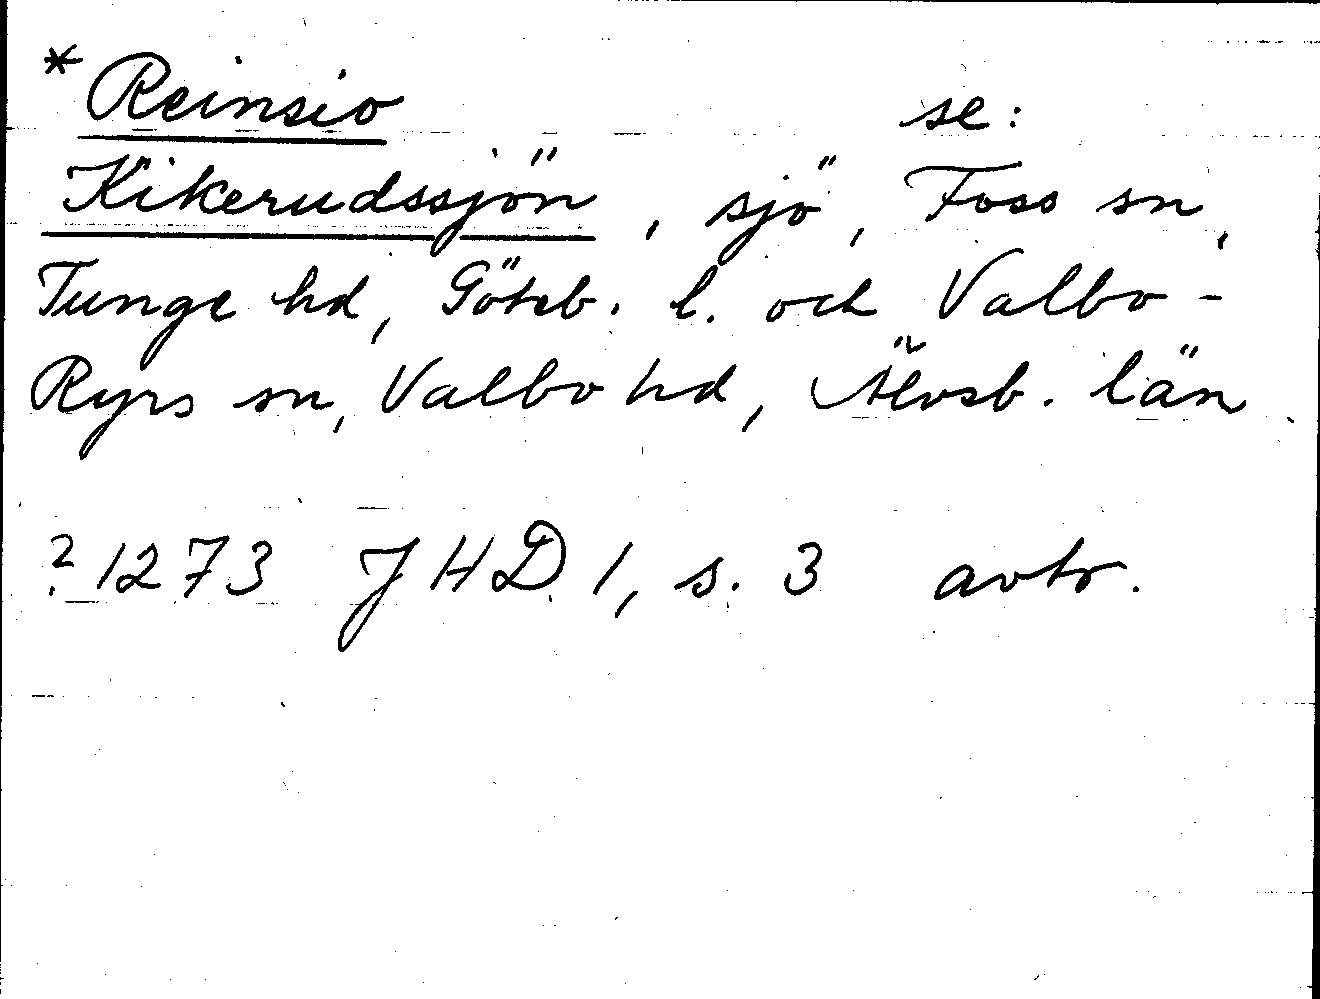 *Reinsio se:
Kikerudssjön, sjö, Foss sn,
Tunge hd, Göteb. l. och Valbo-
Ryrs sn, Valbo hd, Älvsb. län.
? 1273 JHD 1, s. 3 avtr.